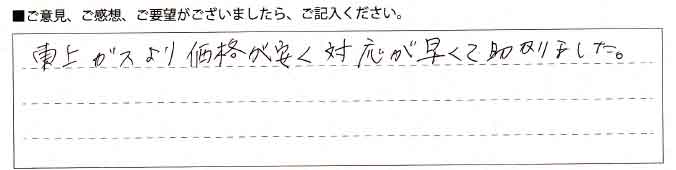 ■ご意見、ご感想、ご要望がございましたら、ご記入ください。
東上ガスより価格が安く対応が早くて助かりました。